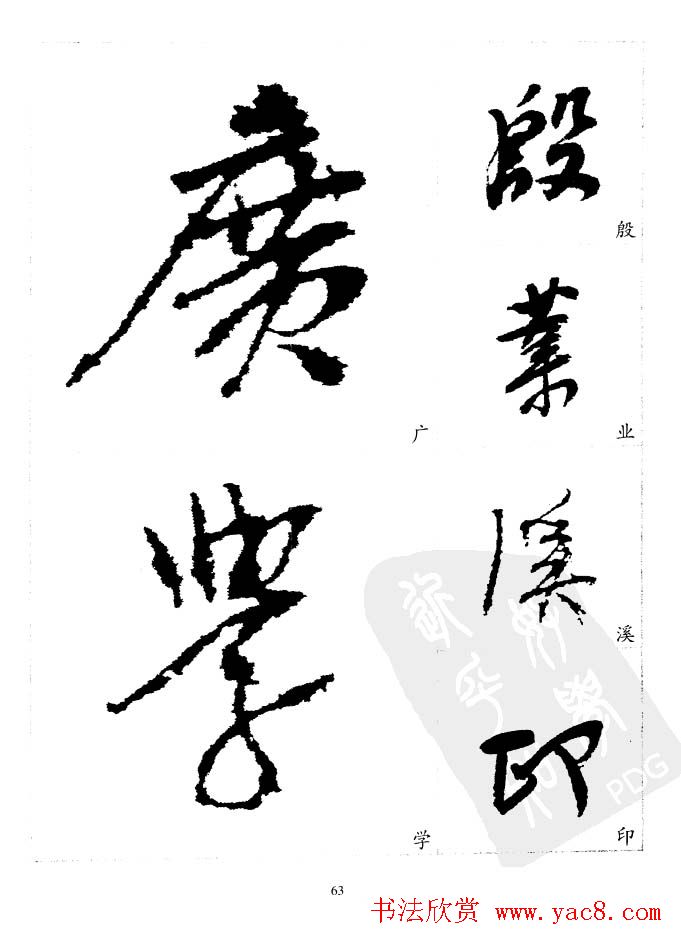 殷
殷
業
业
溪
溪
印
印
廣
广
學
学
PDG
63
书法欣赏 www.yac8.com